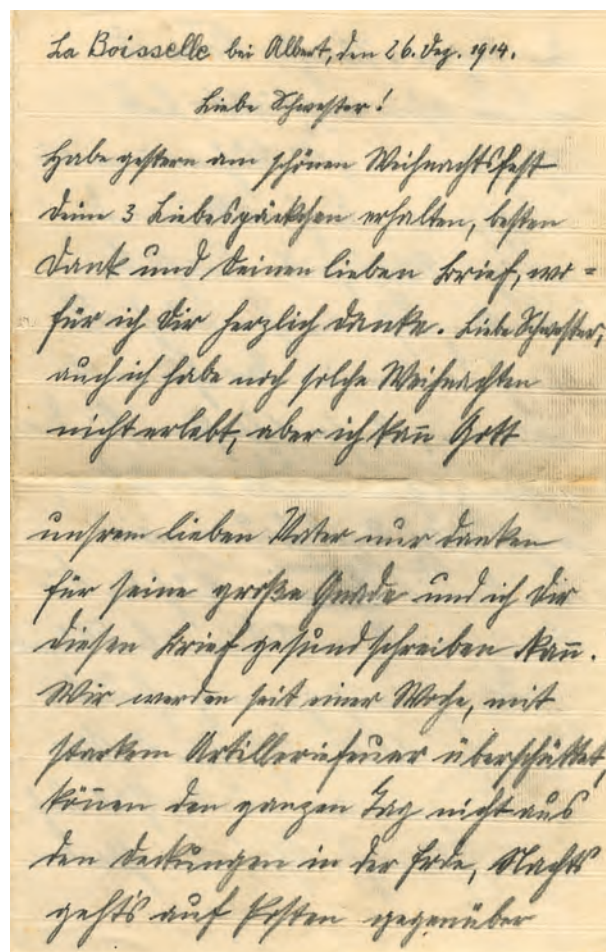 La Boisselle bei Albert, den 26. Dez. 1914.
Liebe Schwester!
Habe gestern am schönen Weihnachtsfest
deine 3 Liebespäckchen erhalten, besten
Dank und deinen lieben Brief, wo=
für ich dir herzlich danke. Liebe Schwester,
auch ich habe noch solche Weihnachten
nicht erlebt, aber ich kan̄ Gott
unsrem lieben Vater nur danken
für seine große Gnade und ich dir
diesen Brief gesund schreiben kan̄.
Wir werden seit einer Woche, mit
starkem Artilleriefeuer überschüttet,
kön̄en den ganzen Tag nicht aus
den Deckungen in der Erde, Nachts
geht's auf Posten gegenüber